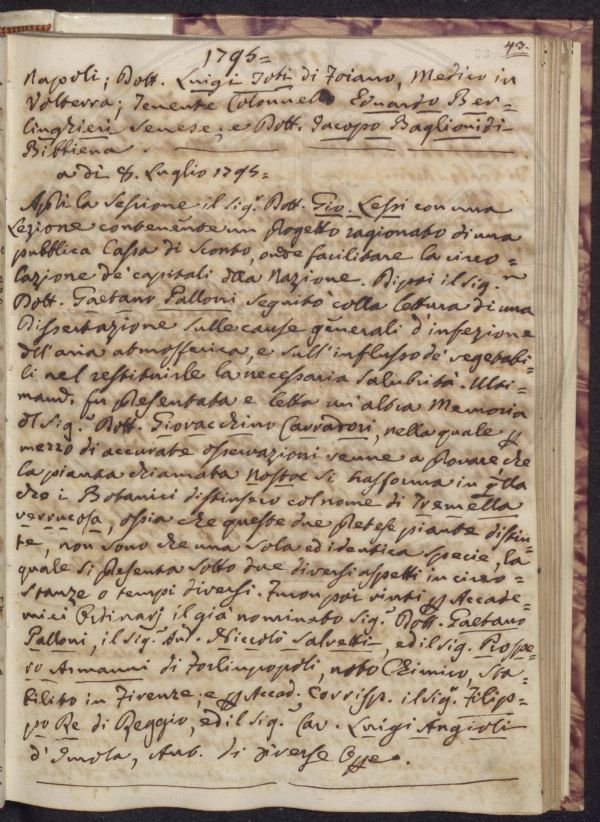 43.
1795=
Napoli; Dott. Luigi Toti di Foiano, Medico in
Volterra; Tenente Colonnello Eduardo Ber=
linghieri Senese; e Dott. Jacopo Baglioni di
Bibbiena.
a di 8. Luglio 1795=
Aprì la Sessione il Sig.r Dott. Gio. Lessi con una
Lezione contenente un Progetto ragionato di una
pubblica Cassa di Sconto, onde facilitare la circo=
lazione de' capitali della Nazione. Dipoi il Sig.r
Dott. Gaetano Palloni seguitò colla lettura di una
Dissertazione sulle cause generali d'infezione
dell'aria atmosferica, e sull'influsso de' vegetabi=
li nel restituirle la necessaria salubrità. Ulti=
mam. fu presentata e letta un'altra Memoria
del Sig.r Dott. Giovacchino Carradori, nella quale p
mezzo di accurate osservazioni venne a provare che
la pianta chiamata Nostoc si trasforma in qlla
che i Botanici distinsero col nome di Tremella
verrucosa, ossia che queste due pretese piante distin=
te, non sono che una sola ed identica specie, la
quale si presenta sotto due diversi aspetti in circo=
stanze o tempi diversi. Furon poi vinti p Accade=
mici Ordinarj il già nominato Sig.r Dott. Gaetano
Palloni, il Sig.r Niccolò Salvetti, ed il Sig. Prospe=
ro Armanni di Forlimpopoli, noto Chimico, Sta=
bilito in Firenze; e p Accad. Corrisp. il Sig.r Filip=
po Re di Reggio, ed il Sig.r Cav. Luigi Angioli
d'Imola, Aut. di diverse Opp.e.